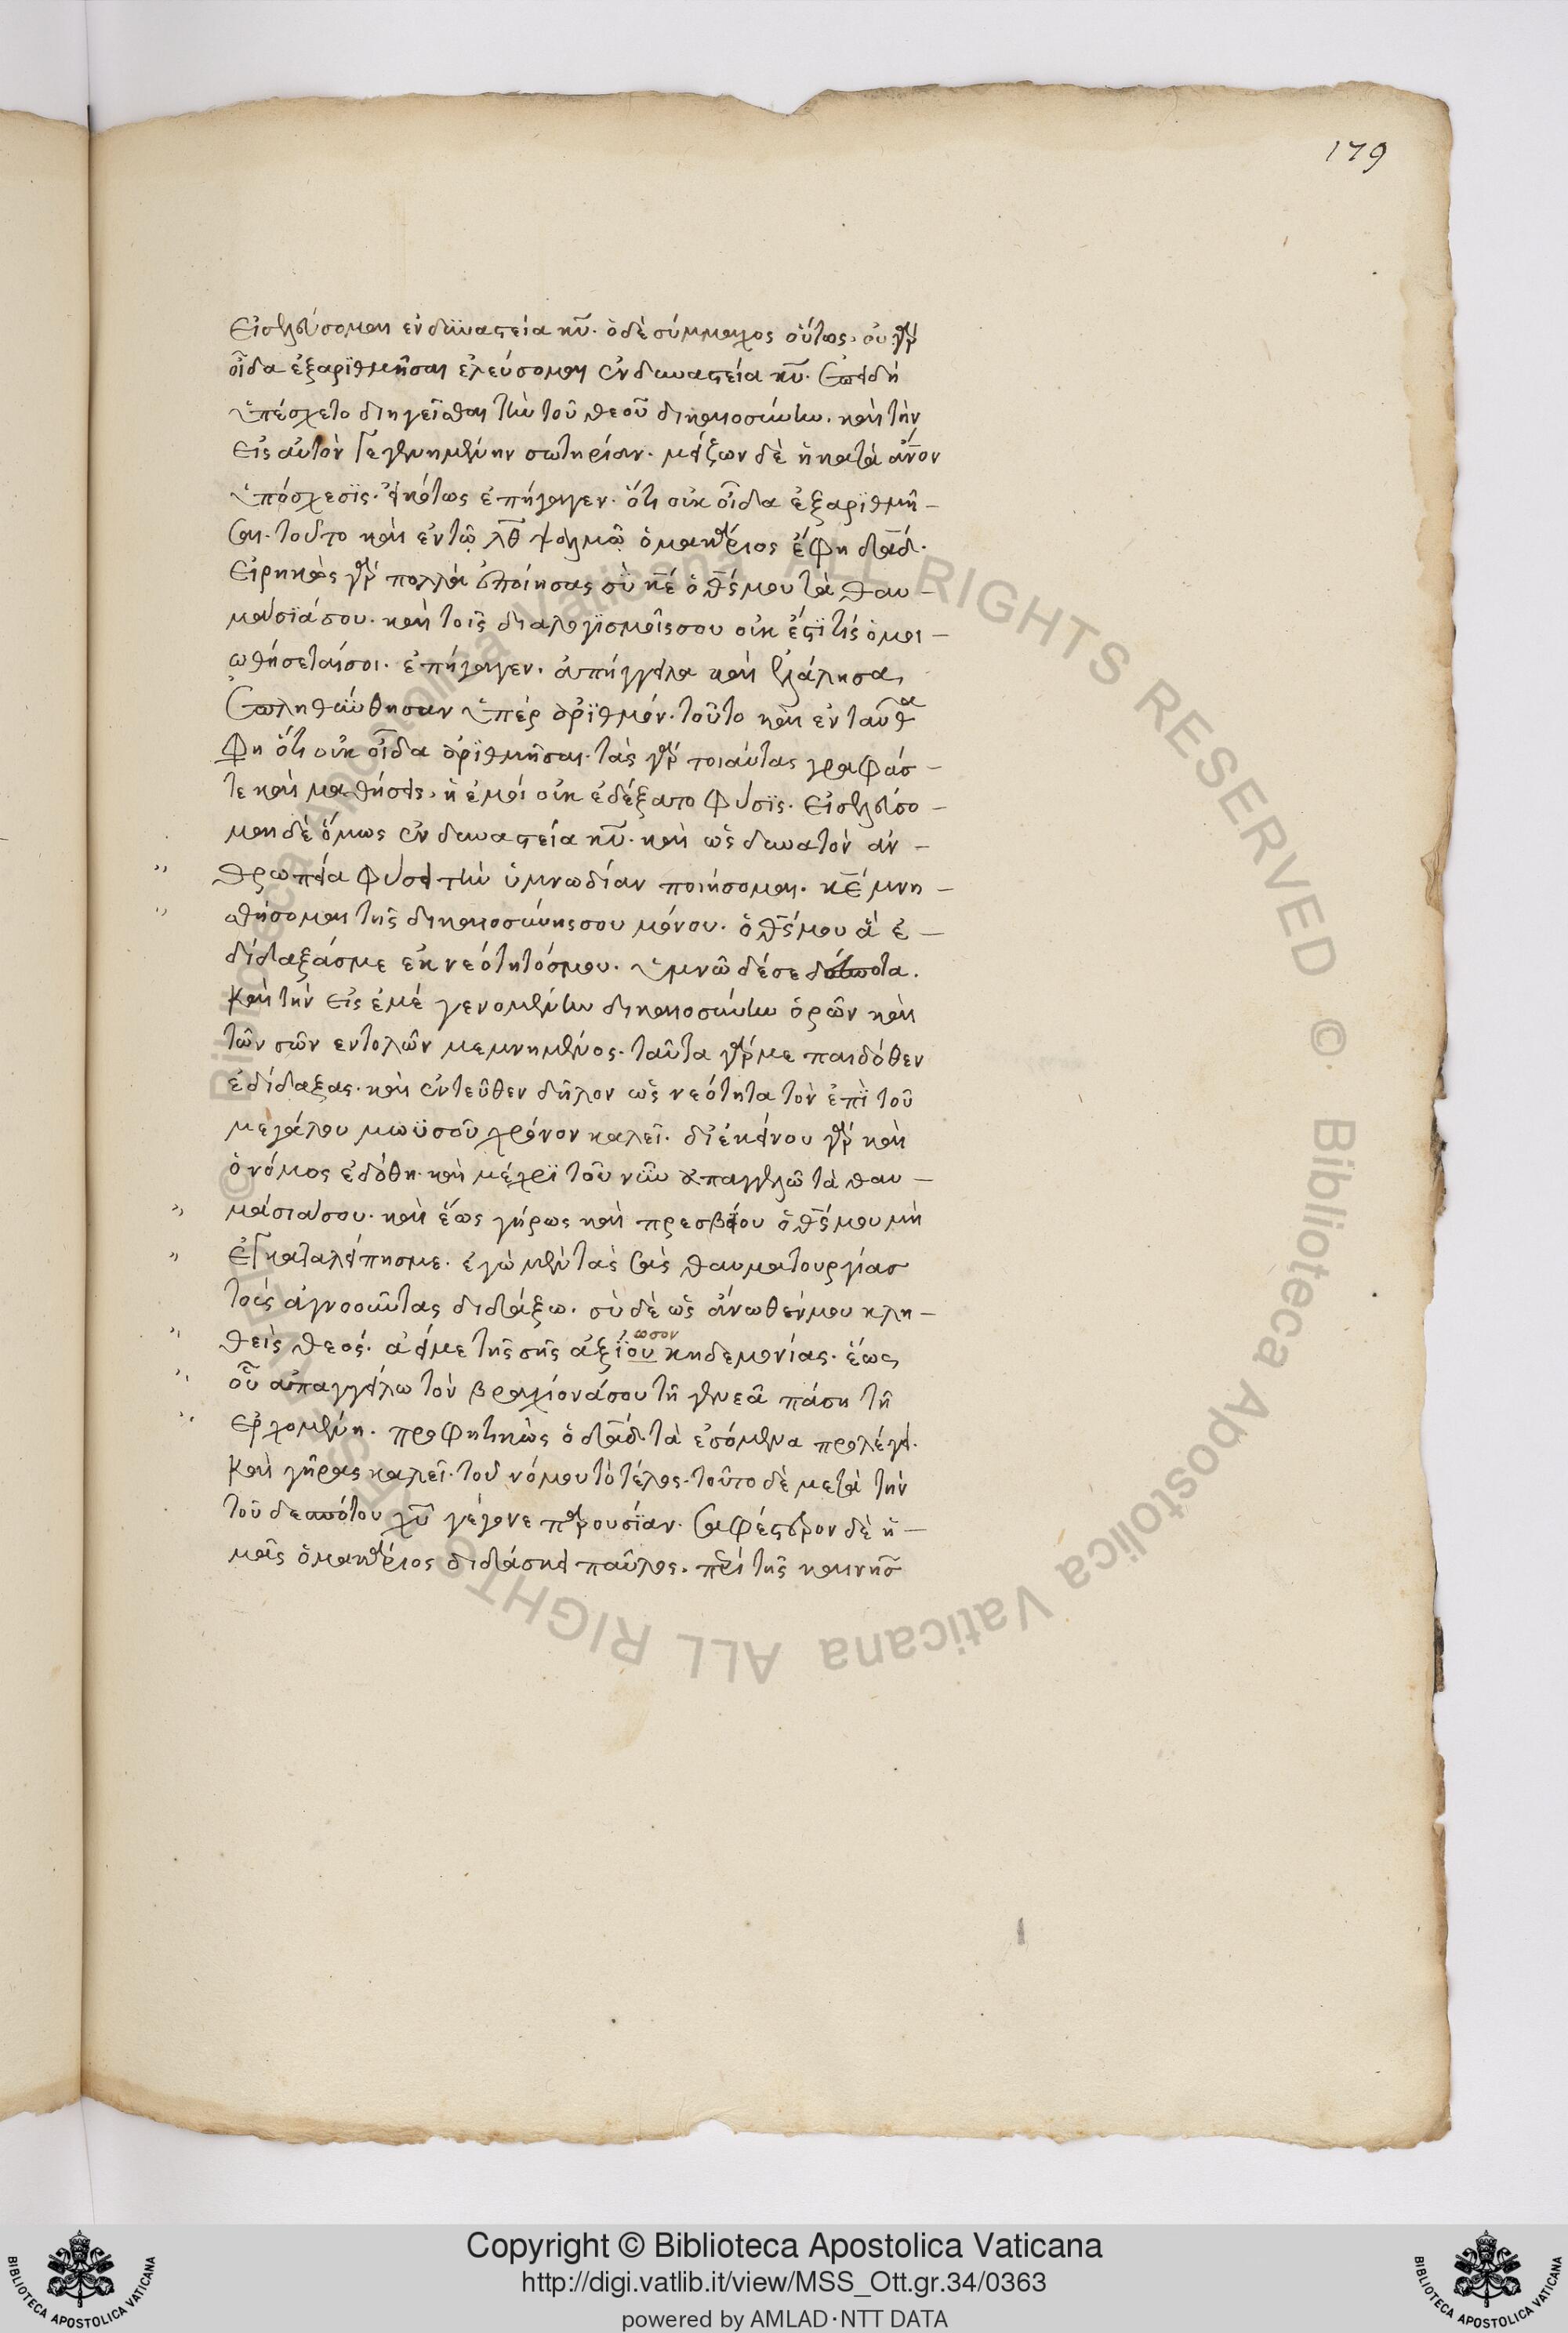 179
εἰσελεύσομαι ἐν δυναστεία κ̅υ̅. ὁ δὲ σύμμαχος οὕτως. οὐ γὰρ
οἶδα ἐξαριθμῆσαι ἐλεύσομαι ἐν δυναστεία κ̅υ̅. ἐπειδὴ
ὑπέσχετο διηγεῖσθαι τὴν τοῦ θεοῦ δικαιοσύνην. καὶ τὴν
εἰς αὐτὸν γεγενημένην σωτηρίαν. μείζων δὲ ἢ κατὰ ἄ̅ν̅ο̅ν
ὑπόσχεσις. εἰκότως ἐπήγαγεν. ὅτι οὐκ οἶδα ἐξαριθμῆ-
σαι. τοῦτο καὶ ἐν τῶ λ̅θ̅ ψαλμῶ ὁ μακάριος ἔφη δ̅α̅δ̅.
εἰρηκὼς γὰρ πολλὰ ἐποίησας σὺ κ̅ε̅ ὁ θ̅ς̅ μου τὰ θαυ-
μάσιά σου. καὶ τοῖς διαλογισμοῖς σου οὐκ ἔστι τίς ὁμοι-
ωθήσεταί σοι. ἐπήγαγεν. ἀπήγγειλα καὶ ἐλάλησα,
ἐπληθύνθησαν ὑπὲρ ἀριθμόν. τοῦτο καὶ ἐνταῦθα
φη ὅτι οὐκ οἶδα ἀριθμῆσαι. τὰς γὰρ τοιαύτας γραφάς
τε καὶ μαθήσεις, ἡ ἐμὴ οὐκ ἐδέξατο φύσις. εἰσελεύσο-
μαι δὲ ὅμως ἐν δυναστεία κ̅υ̅. καὶ ὡς δυνατὸν ἀν-
θρωπεία φύσει τὴν ὑμνωδίαν ποιήσομαι. κ̅ε̅ μνη-
σθήσομαι τῆς δικαιοσύνης σου μόνου. ὁ θ̅ς̅ μου ἃ ἐ-
δίδαξάς με ἐκ νεότητός μου. ὑμνῶ δέ σε δέσποτα.
καὶ τὴν εἰς ἐμὲ γενομένην δικαιοσύνην ὁρῶν καὶ
τῶν σῶν ἐντολῶν μεμνημένος. ταῦτα γάρ με παιδόθεν
ἐδίδαξας. καὶ ἐντεῦθεν δῆλον ὡς νεότητα τὸν ἐπὶ τοῦ
μεγάλου μωϋσοῦ χρόνον καλεῖ. δι' ἐκείνου γὰρ καὶ
ὁ νόμος ἐδόθη. καὶ μέχρι τοῦ νῦν ἀπαγγελῶ τὰ θαυ-
μάσιά σου. καὶ ἕως γήρως καὶ πρεσβείου ὁ θ̅ς̅ μου μὴ
ἐγκαταλείπης με. ἐγὼ μὲν τὰς σὰς θαυματουργίας
τοὺς ἀγνοοῦντας διδάξω. σὺ δὲ ὡς ἄνωθέν μου κλη-
ωσον
θεὶς θεός. ἀεί με τῆς σῆς ἀξίου κηδεμονίας. ἕως
οὗ ἀπαγγείλω τὸν βραχίονά σου τῆ γενεᾶ πάση τῆ
ἐρχομένη. προφητικῶς ὁ δ̅α̅δ̅. τὰ ἐσόμενα προλέγει.
καὶ γῆρας καλεῖ. τοῦ νόμου τὸ τέλος. τοῦτο δὲ μετὰ τὴν
τοῦ δεσπότου χ̅υ̅ γέγονε παρουσίαν. σαφέστερον δὲ ἡ-
μᾶς ὁ μακάριος διδάσκει παῦλος. περὶ τῆς καινῆς
Copyright © Biblioteca Apostolica Vaticana
http://digi.vatlib.it/view/MSS_Ott.gr.34/0363
powered by AMLAD·NTT DATA